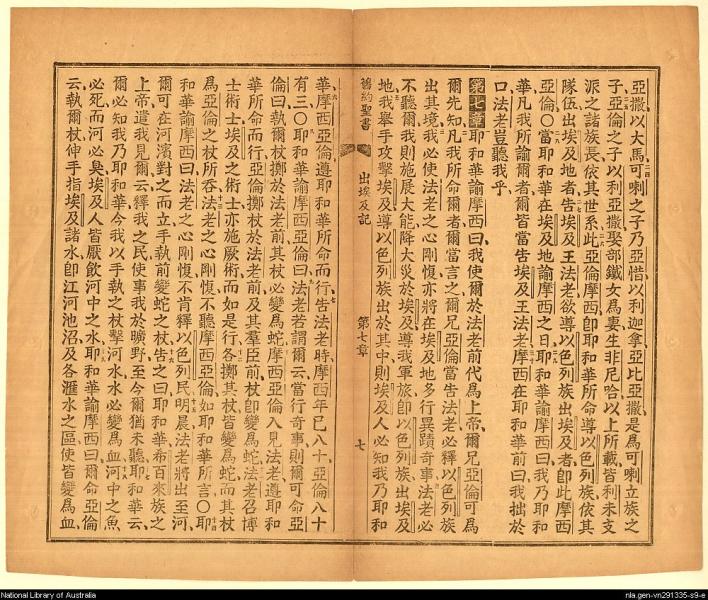 亞撒以大馬可喇之子乃亞惜以利迦拿亞比亞撒是爲可喇立族之
子亞倫之子以利亞撒娶部鐵女爲妻生非尼哈以上所載皆利未支
派之諸族長依其世系此亞倫摩西卽耶和華所命導以色列族依其
隊伍出埃及地者告埃及王法老欲導以色列族出埃及者卽此摩西
亞倫〇當耶和華在埃及地諭摩西之日耶和華諭摩西曰我乃耶和
華凡我所諭爾者爾皆當告埃及王法老摩西在耶和華前曰我拙於
口法老豈聽我乎
第七章耶和華諭摩西曰我使爾於法老前代爲上帝爾兄亞倫可爲
爾先知凡我所命爾者爾當言之爾兄亞倫當告法老必釋以色列族
出其境我必使法老之心剛愎亦將在埃及地多行異蹟奇事法老必
不聽爾我則施展大能降大災於埃及導我軍旅卽以色列族出埃及
地我舉手攻擊埃及導以色列族出於其中則埃及人必知我乃耶和
舊約聖書 出埃及記 第七章 七
華摩西亞倫遵耶和華所命而行告法老時摩西年已八十亞倫八十
有三〇耶和華諭摩西亞倫曰法老若謂爾云當行奇事則爾可命亞
倫曰執爾杖擲於法老前其杖必變爲蛇摩西亞倫入見法老遵耶和
華所命而行亞倫擲杖於法老前及其羣臣前杖卽變爲蛇法老召博
士術士埃及之術士亦施厥術而如是行各擲其杖皆變爲蛇而其杖
爲亞倫之杖所吞法老之心剛愎不聽摩西亞倫如耶和華所言〇耶
和華諭摩西曰法老之心剛愎不肯釋以色列民明晨法老將出至河
爾可在河濱對之而立手執前變蛇之杖告之曰耶和華希百來族之
上帝遣我見爾云釋我之民使事我於曠野至今爾猶未聽耶和華云
爾必知我乃耶和華今我以手執之杖擊河水水必變爲血河中之魚
必死而河必臭埃及人皆厭飮河中之水耶和華諭摩西曰爾命亞倫
云執爾杖伸手指埃及諸水卽江河池沼及各滙水之區使皆變爲血
National Library of Australia
nla.gen-vn291335-s9-e